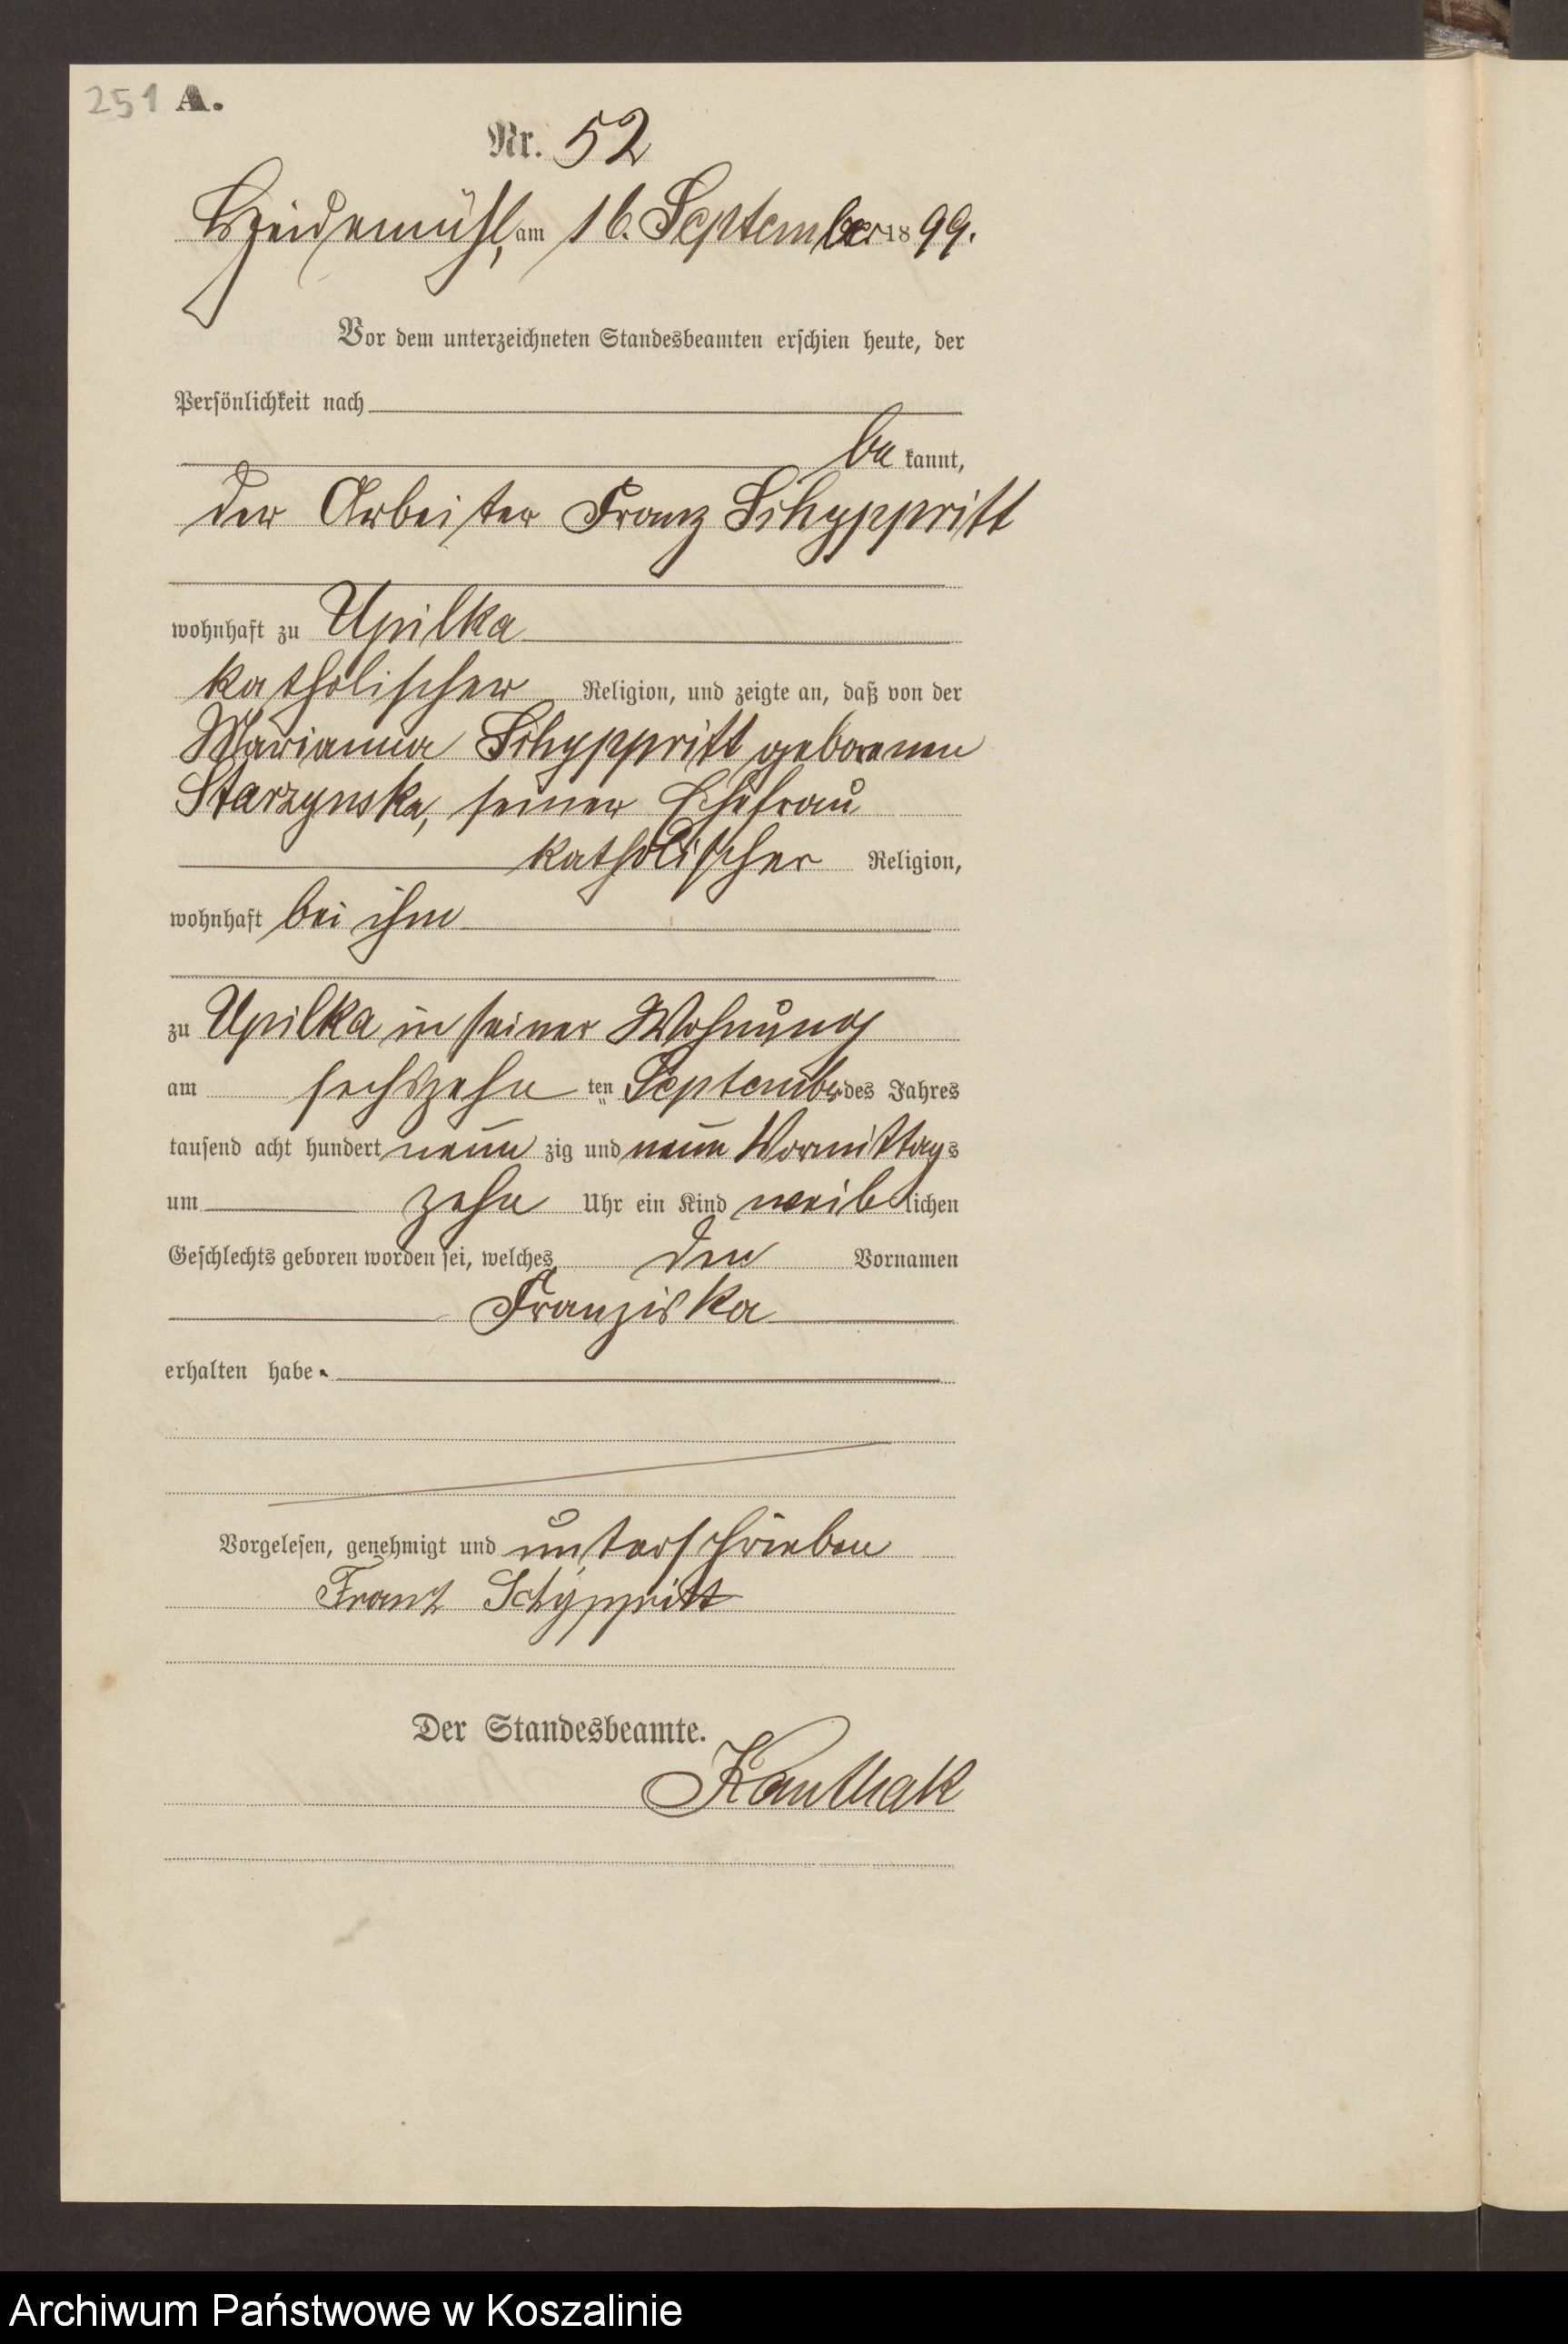 251 A.
Nr. 52
Heidemühl, am 16. September 1899.
Vor dem unterzeichneten Standesbeamten erschien heute, der
Persönlichkeit nach
be kannt,
der Arbeiter Franz Schyppritt
wohnhaft zu Upilka
katholischer Religion, und zeigte an, daß von der
Marianna Schyppritt geborenen
Starzynska, seiner Ehefrau
katholischer Religion,
wohnhaft bei ihm
zu Upilka in seiner Wohnung
am sechszehn ten September des Jahres
tausend acht hundert neun zig und neun Vormittags
um zehn Uhr ein Kind weiblichen
Geschlechts geboren worden sei, welches den Vornamen
Franziska
erhalten habe.
Vorgelesen, genehmigt und unterschrieben
Franz Schyppritt
Der Standesbeamte.
Kanthak
Archiwum Państwowe w Koszalinie